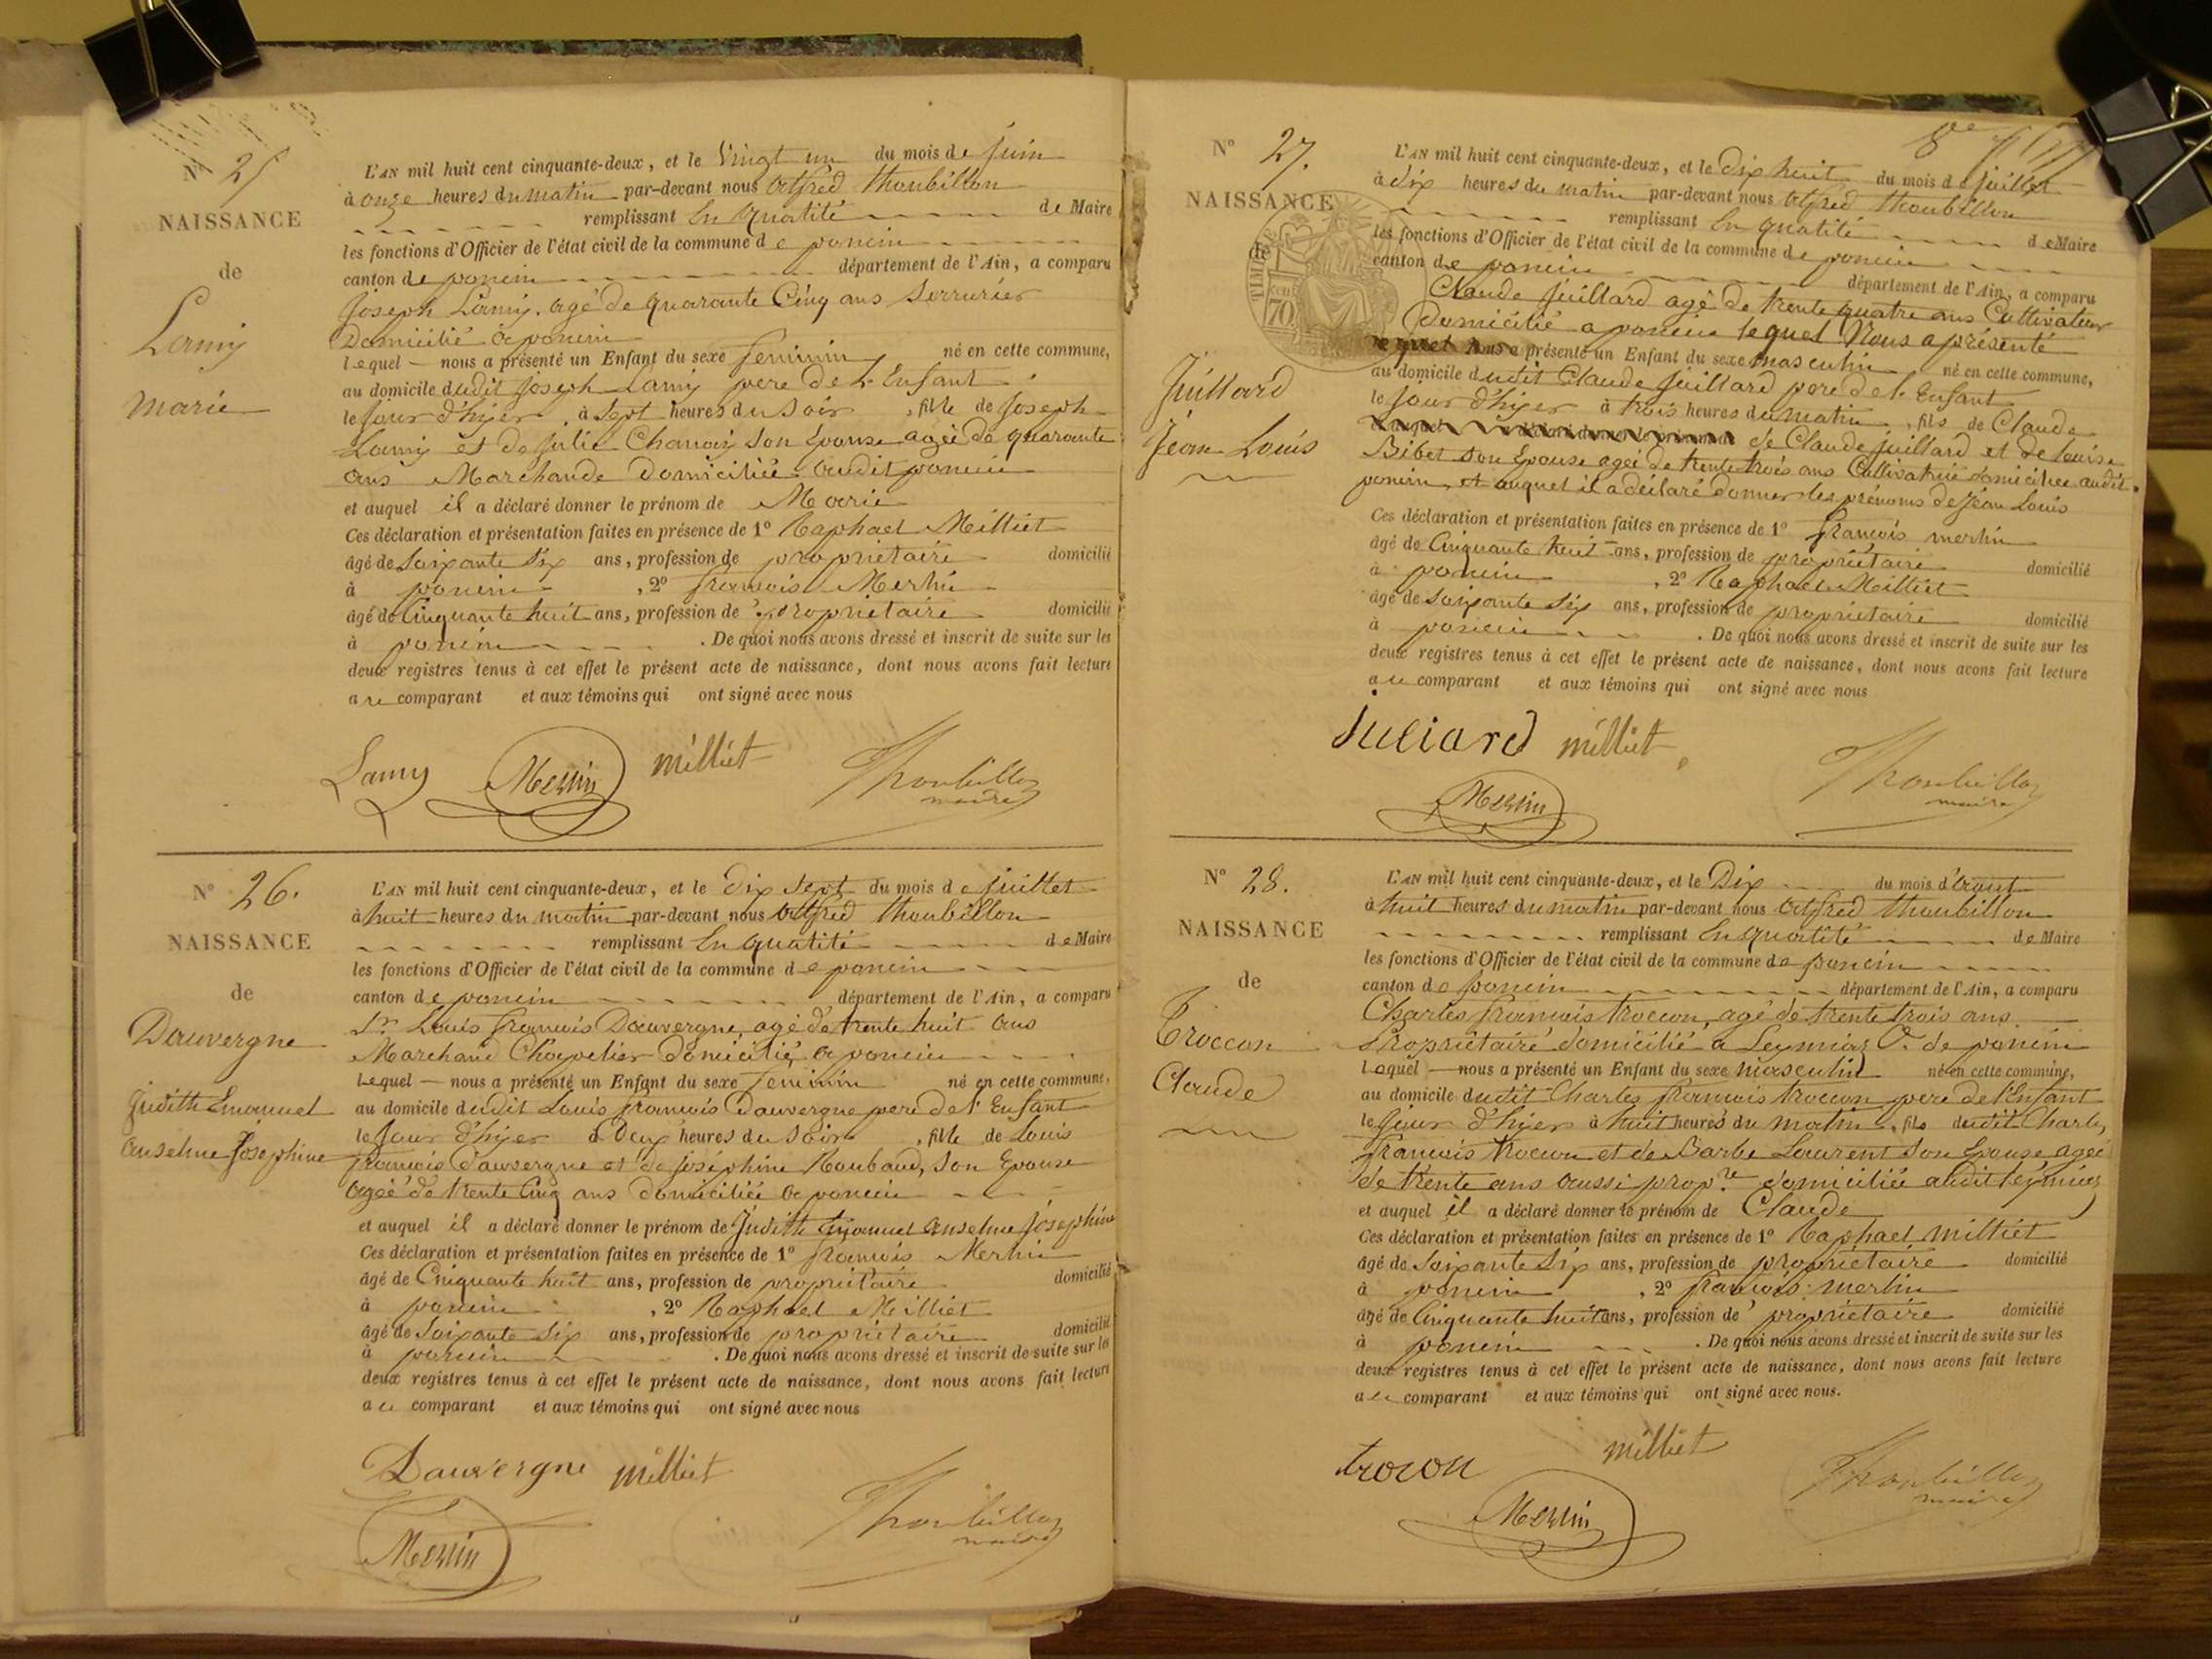 N° 25
NAISSANCE
de
Lamy
Marie
L'AN mil huit cent cinquante-deux, et le Vingt un du mois de juin
à onze heures du matin par-devant nous Alfred Thoubillon
remplissant En qualité de Maire
les fonctions d'Officier de l'état civil de la commune de poncin
canton de poncin département de l'Ain, a comparu
Joseph Lamy, agé de quarante Cinq ans Serrurier
Domicilié à poncin
Lequel nous a présenté un Enfant du sexe feminin né en cette commune,
au domicile dudit Joseph Lamy pere de l'Enfant
le jour d'hyer à sept heures du soir, fille de Joseph
Lamy et de Julie Chanay son Epouse agée de quarante
ans Marchande Domiciliée audit poncin
et auquel il a déclaré donner le prénom de Marie
Ces déclaration et présentation faites en présence de 1° Raphael Milliet
âgé de Soixante Six ans, profession de propriétaire domicilié
à poncin, 2° françois Merlin
âgé de Cinquante huit ans, profession de propriétaire domicilié
à poncin. De quoi nous avons dressé et inscrit de suite sur les
deux registres tenus à cet effet le présent acte de naissance, dont nous avons fait lecture
au comparant et aux témoins qui ont signé avec nous
Lamy Merlin milliet Thoubillon
maire
N° 26.
NAISSANCE
de
Dauvergne
Judith Emanuel
Anselme Josephine
L'AN mil huit cent cinquante-deux, et le Dix sept du mois de juillet
à huit heures du matin par-devant nous Alfred Thoubillon
remplissant En qualité de Maire
les fonctions d'Officier de l'état civil de la commune de poncin
canton de poncin département de l'Ain, a comparu
Sr Louis françois Dauvergne, agé de trente huit ans
Marchand Chapelier domicilié a poncin
Lequel nous a présenté un Enfant du sexe féminin né en cette commune,
au domicile dudit Louis françois Dauvergne pere de l'Enfant
le jour d'hyer à Deux heures du soir, fille de Louis
françois Dauvergne et de joséphine Roubaud, son Epouse
agée de trente Cinq ans domiciliée a poncin
et auquel il a déclaré donner le prénom de Judith Emanuel Anselme Joséphine
Ces déclaration et présentation faites en présence de 1° françois Merlin
âgé de Cinquante huit ans, profession de propriétaire domicilié
à poncin, 2° Raphael Milliet
âgé de Soixante Six ans, profession de propriétaire domicilié
à poncin. De quoi nous avons dressé et inscrit de suite sur les
deux registres tenus à cet effet le présent acte de naissance, dont nous avons fait lecture
au comparant et aux témoins qui ont signé avec nous
Dauvergne milliet
Merlin Thoubillon
maire
N° 27.
NAISSANCE
de
TIMBRE
70
Juillard
Jean Louis
L'AN mil huit cent cinquante-deux, et le Dix huit du mois de juillet
à dix heures du matin par-devant nous Alfred Thoubillon
remplissant En qualité de Maire
les fonctions d'Officier de l'état civil de la commune de poncin
canton de poncin département de l'Ain, a comparu
Claude Juillard agé de trente quatre ans Cultivateur
Domicilié a poncin lequel Nous a présenté
nous a présenté un Enfant du sexe masculin né en cette commune,
au domicile dudit Claude Juillard pere de l'Enfant
le jour d'hyer à trois heures du matin, fils de Claude
de Claude Juillard et de Louise
Bibet son Epouse agée de trente trois ans Cultivatrice domiciliée audit
poncin, et auquel il a déclaré donner les prénoms de Jean Louis
Ces déclaration et présentation faites en présence de 1° françois merlin
âgé de Cinquante huit ans, profession de propriétaire domicilié
à poncin, 2° Raphael Milliet
âgé de Soixante Six ans, profession de propriétaire domicilié
à poncin. De quoi nous avons dressé et inscrit de suite sur les
deux registres tenus à cet effet le présent acte de naissance, dont nous avons fait lecture
au comparant et aux témoins qui ont signé avec nous
Juliard milliet
Merlin Thoubillon
maire
N° 28.
NAISSANCE
de
Troccon
Claude
L'AN mil huit cent cinquante-deux, et le Dix du mois d'aout
à huit heures du matin par-devant nous Alfred Thoubillon
remplissant En qualité de Maire
les fonctions d'Officier de l'état civil de la commune de poncin
canton de poncin département de l'Ain, a comparu
Charles françois troccon, agé de trente trois ans
Propriétaire domicilié a Leymiaz Cne de poncin
Lequel nous a présenté un Enfant du sexe masculin né en cette commune,
au domicile dudit Charles françois troccon pere de l'Enfant
le jour d'hyer à huit heures du matin, fils dudit Charles
françois troccon et de Barbe Laurent son Epouse agée
de trente ans aussi propre domiciliée audit leymiaz
et auquel il a déclaré donner le prénom de Claude
Ces déclaration et présentation faites en présence de 1° Raphael Milliet
âgé de Soixante Six ans, profession de propriétaire domicilié
à poncin, 2° françois merlin
âgé de Cinquante huit ans, profession de propriétaire domicilié
à poncin. De quoi nous avons dressé et inscrit de suite sur les
deux registres tenus à cet effet le présent acte de naissance, dont nous avons fait lecture
au comparant et aux témoins qui ont signé avec nous.
trocon milliet
Merlin Thoubillon
maire